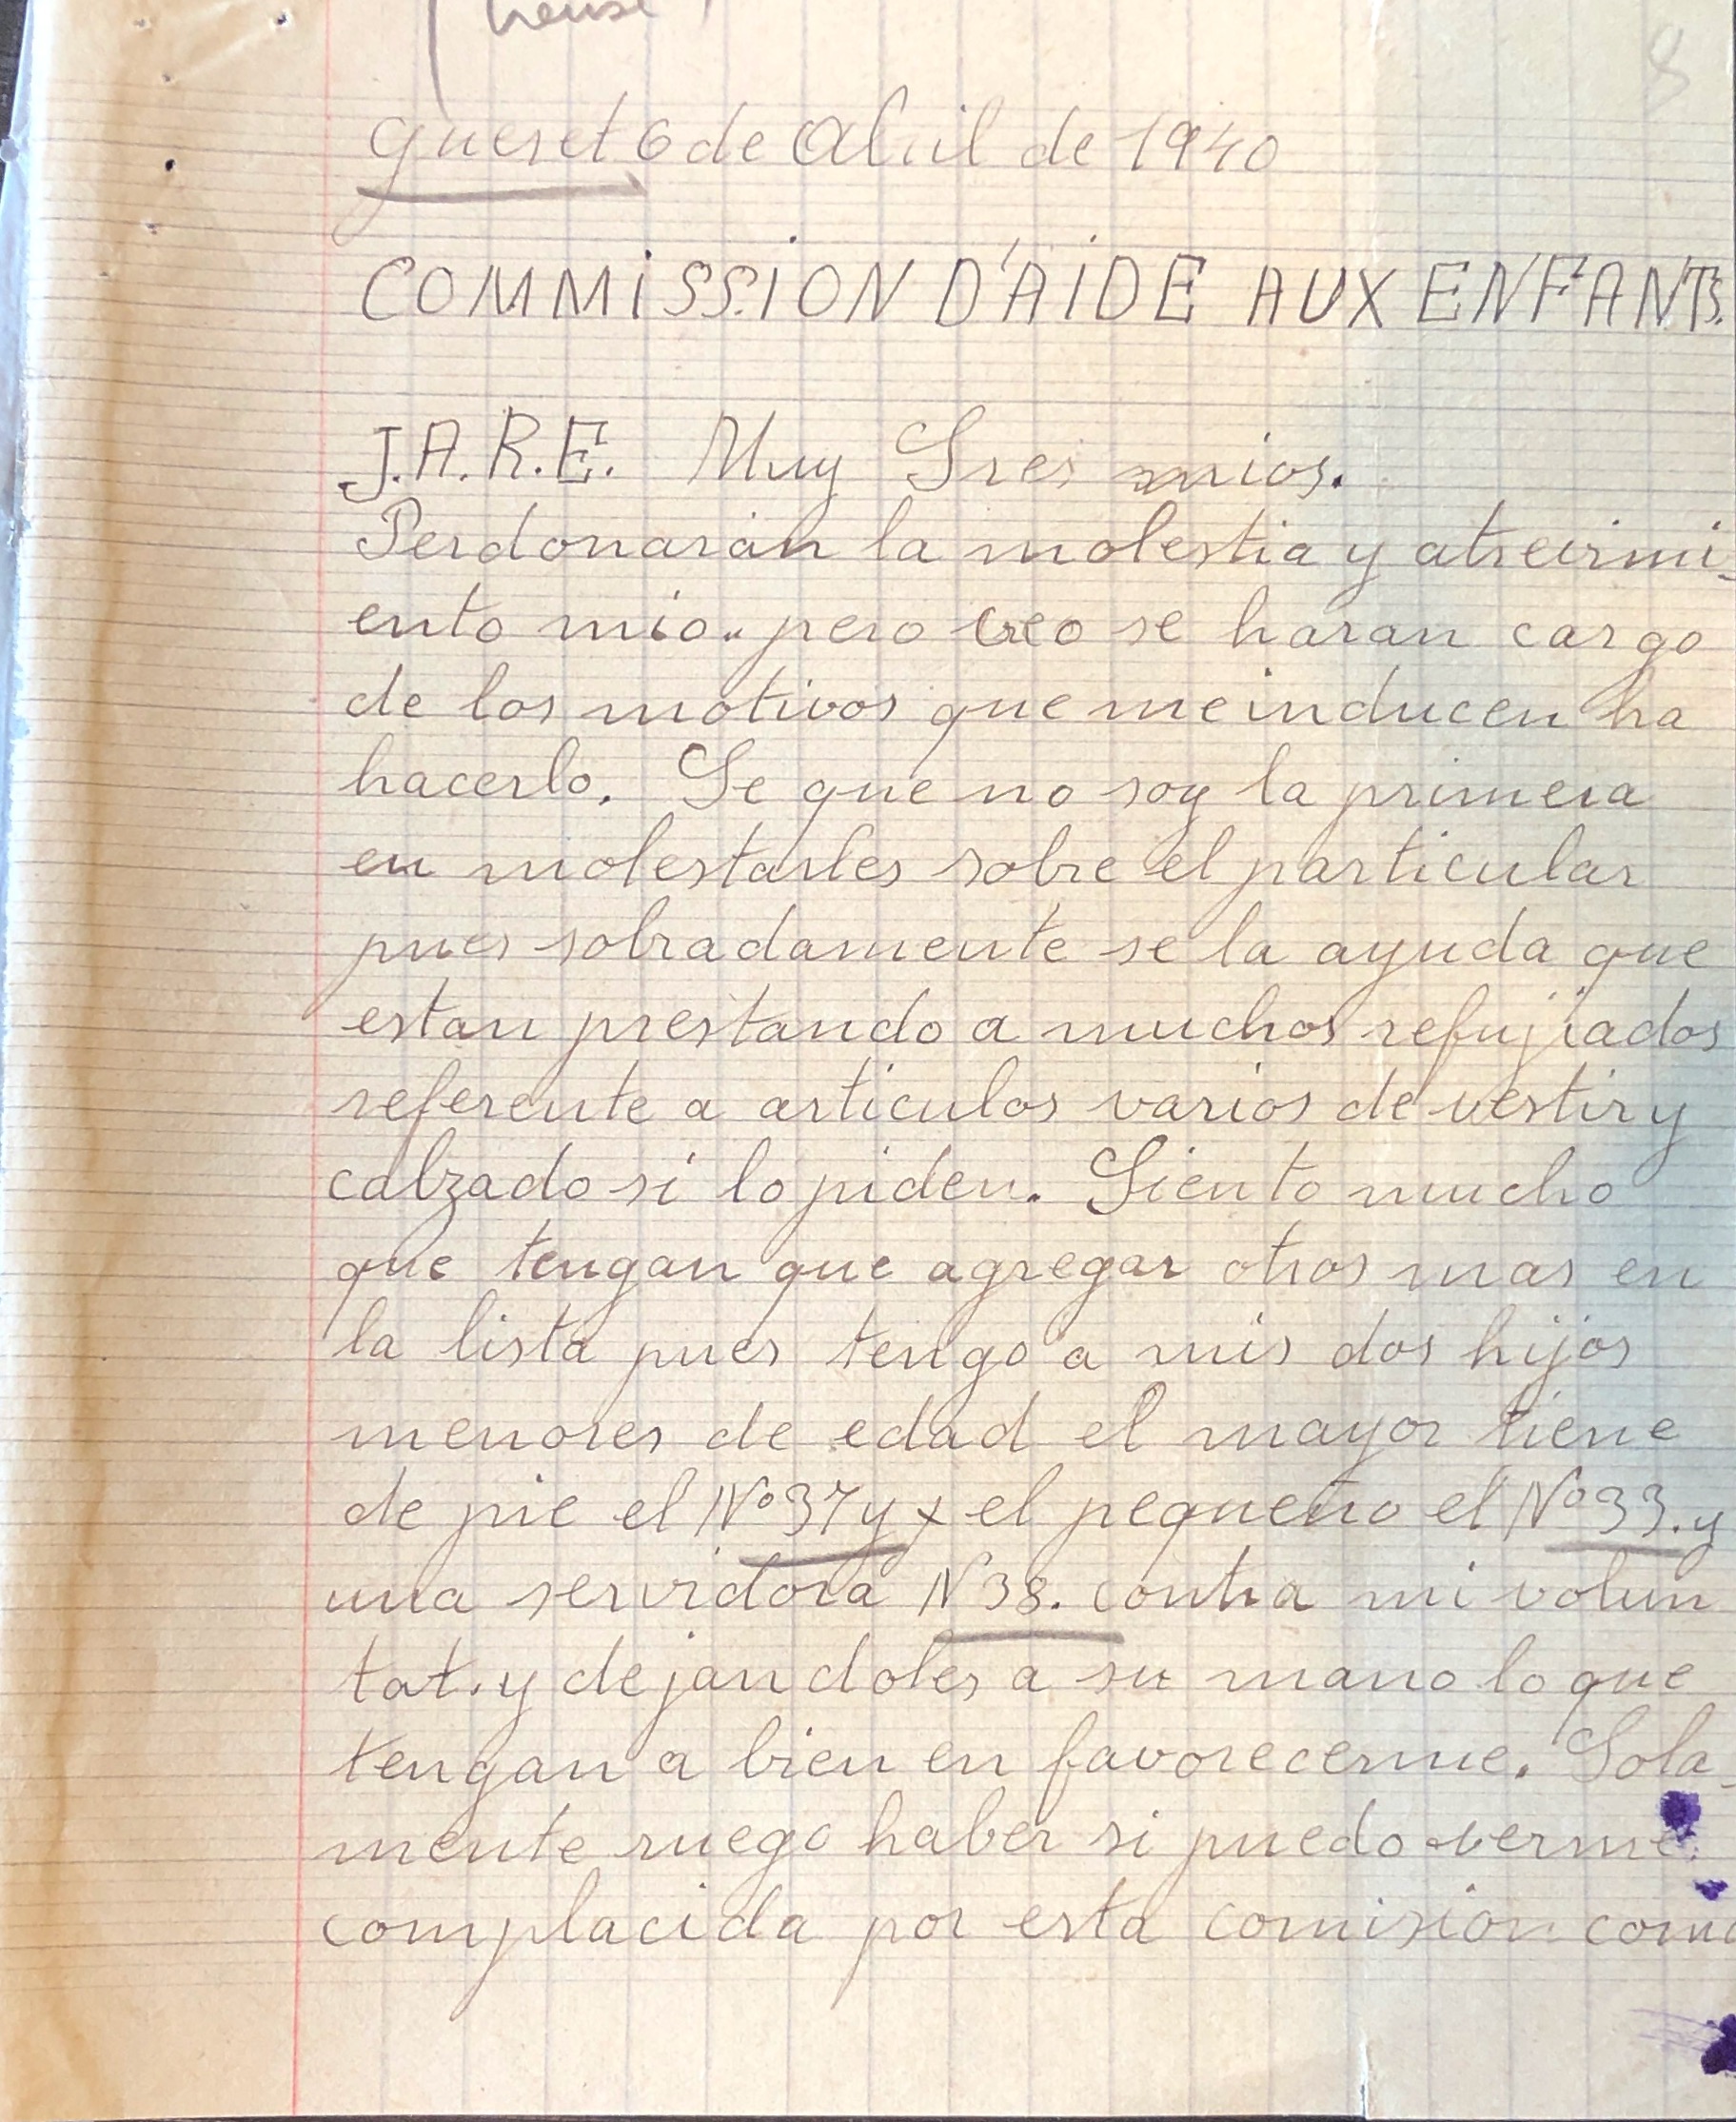 (
8
Gueret 6 de Abril de 1940
COMMiSSiON D'AiDE AUX ENFANTS.
J.A.R.E. Muy Sres mios.
Perdonarán la molestia y atreivimi-
ento mio.. pero creo se haran cargo
de los motivos que me inducen ha
hacerlo. Se que no soy la primera
en molestarles sobre el particular
pues sobradamente se la ayuda que
estan prestando a muchos refujiados
referente a articulos varios de vestir y
calzado si lo piden. Siento mucho
que tengan que agregar otros mas en
la lista pues tengo a mis dos hijos
menores de edad el mayor tiene
de pie el Nº 37 y x el pequeño el Nº 33. y
una servidora N 38. contra mi volun
tat. y dejandoles a su mano lo que
tengan a bien en favorecerme. Sola-
mente ruego haber si puedo verme
complacida por esta comision como